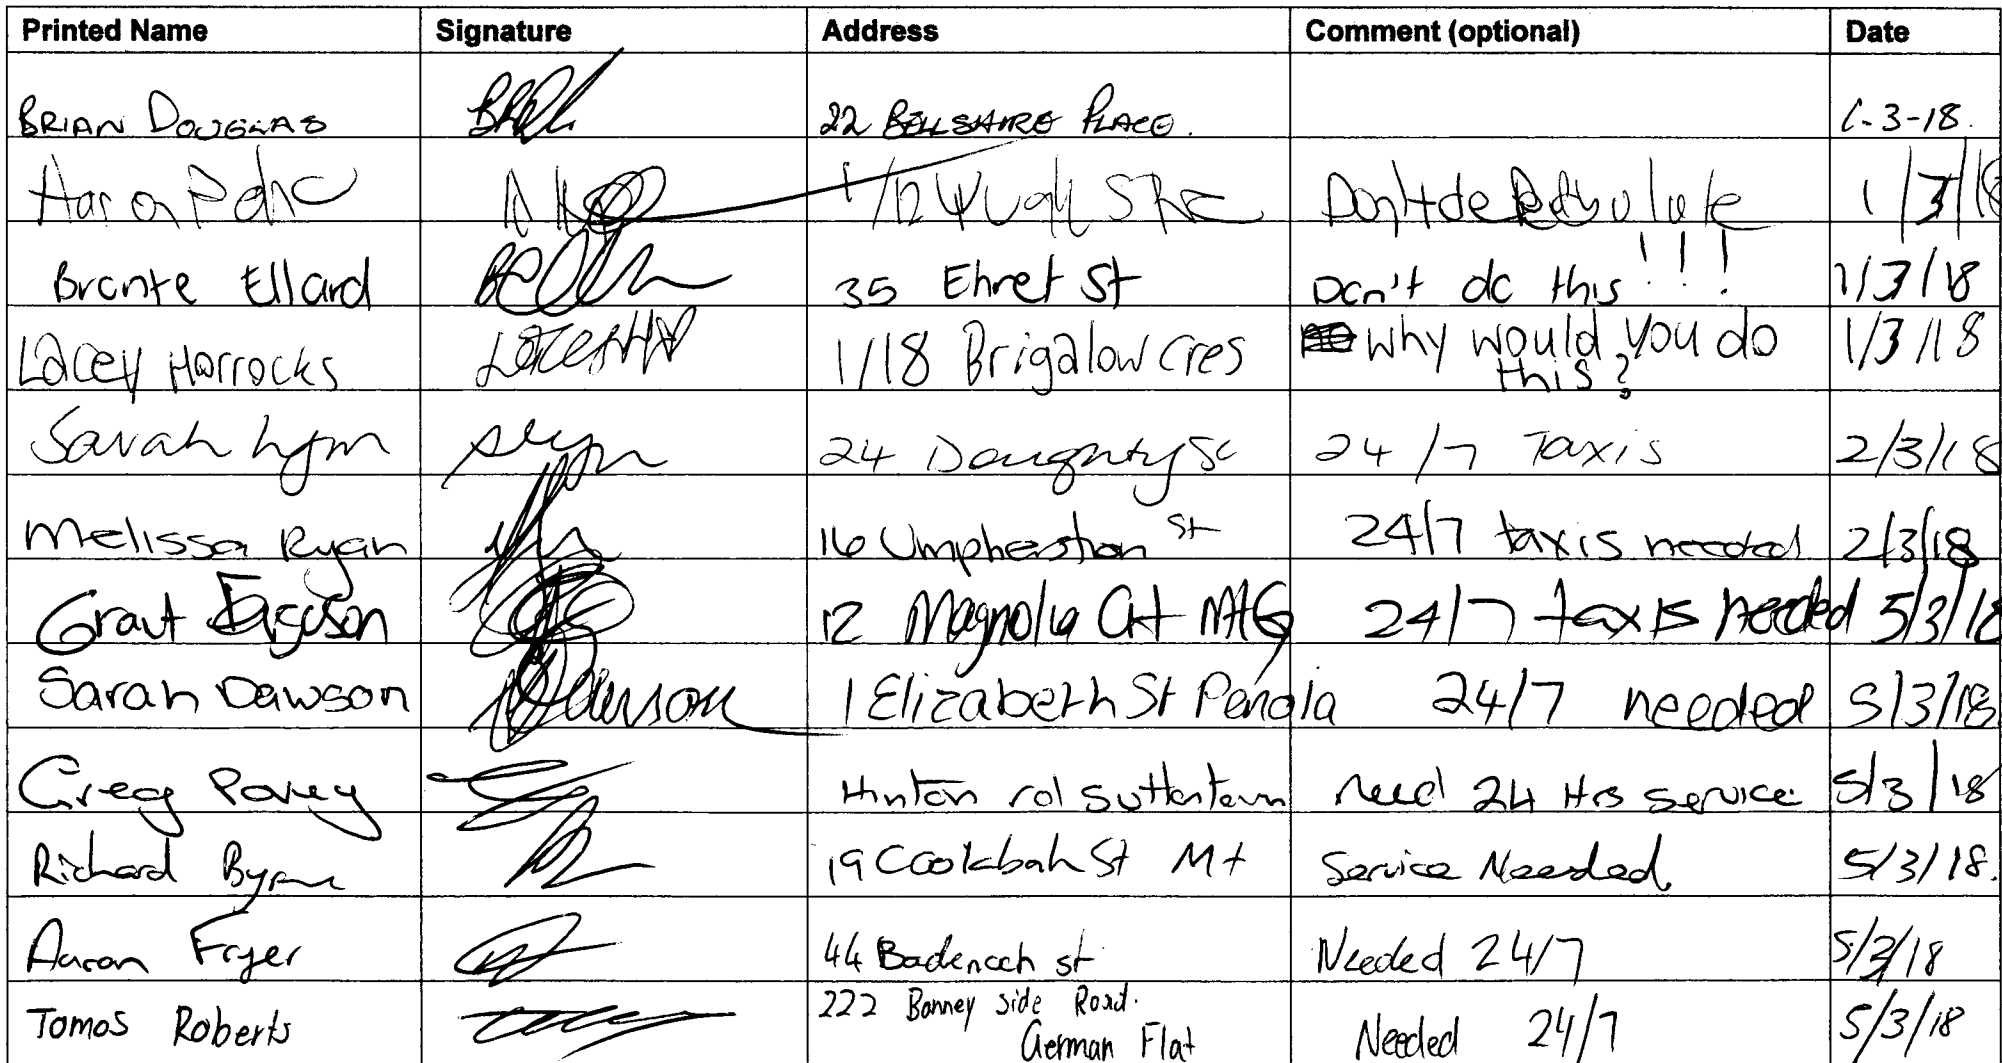 Printed Name Signature Address Comment (optional) Date
BRIAN DOUGLAS 22 BELLSHIRE PLACE. 1-3-18.
Aaron 1/12 Don't 1/3/18
Bronte Ellard 35 Ehret St Don't do this !!! 1/3/18
Lacey Horrocks 1/18 Brigalow cres why would you do 1/3/18
this?
Sarah Lym 24 Doughty St 24/7 Taxis 2/3/18
Melissa Ryan 16 Umpherston St 24/7 taxis needed 2/3/18
Grant Ferguson 12 Magnolia Crt MtG 24/7 taxis needed 5/3/18
Sarah Dawson Dawson 1 Elizabeth St Penola 24/7 needed 5/3/18
Greg Povey Hinton rd Suttontown need 24 Hrs service 5/3/18
Richard Byrne 19 Coolabah St Mt Service Needed. 5/3/18.
Aaron Fryer 44 Badenoch st Needed 24/7 5/3/18
222 Bonney side Road.
Tomos Roberts German Flat Needed 24/7 5/3/18